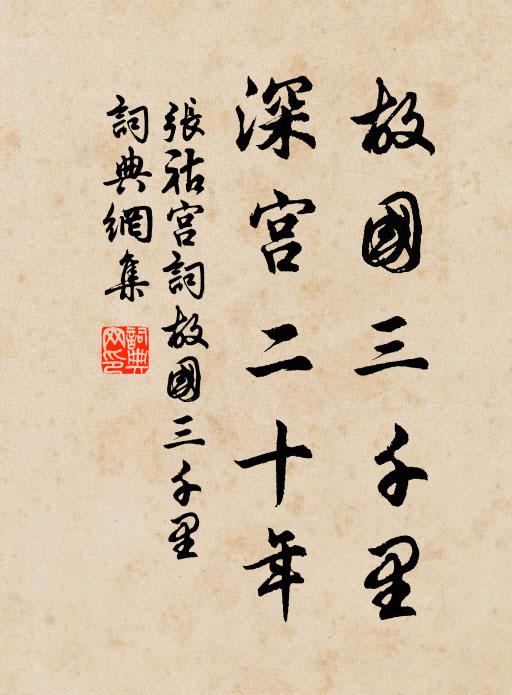 故國三千里
深宮二十年
張祜宮詞故國三千里
詞典網集
詞典
網印